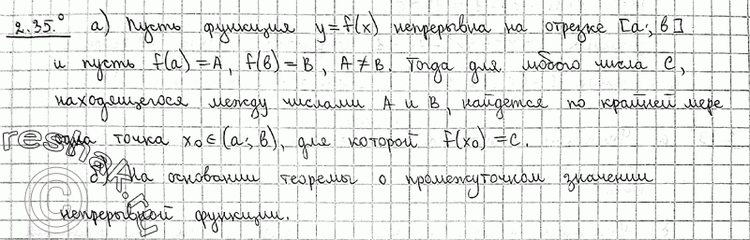 2.35.° а) Пусть функция y=f(x) непрерывна на отрезке [a; в]
и пусть f(a)=A, f(в)=B, A≠B. Тогда для любого числа C,
находящегося между числами A и B, найдется по крайней мере
одна точка x₀∈(a; в), для которой f(x₀)=C.
б) На основании теоремы о промежуточном значении
непрерывной функции.